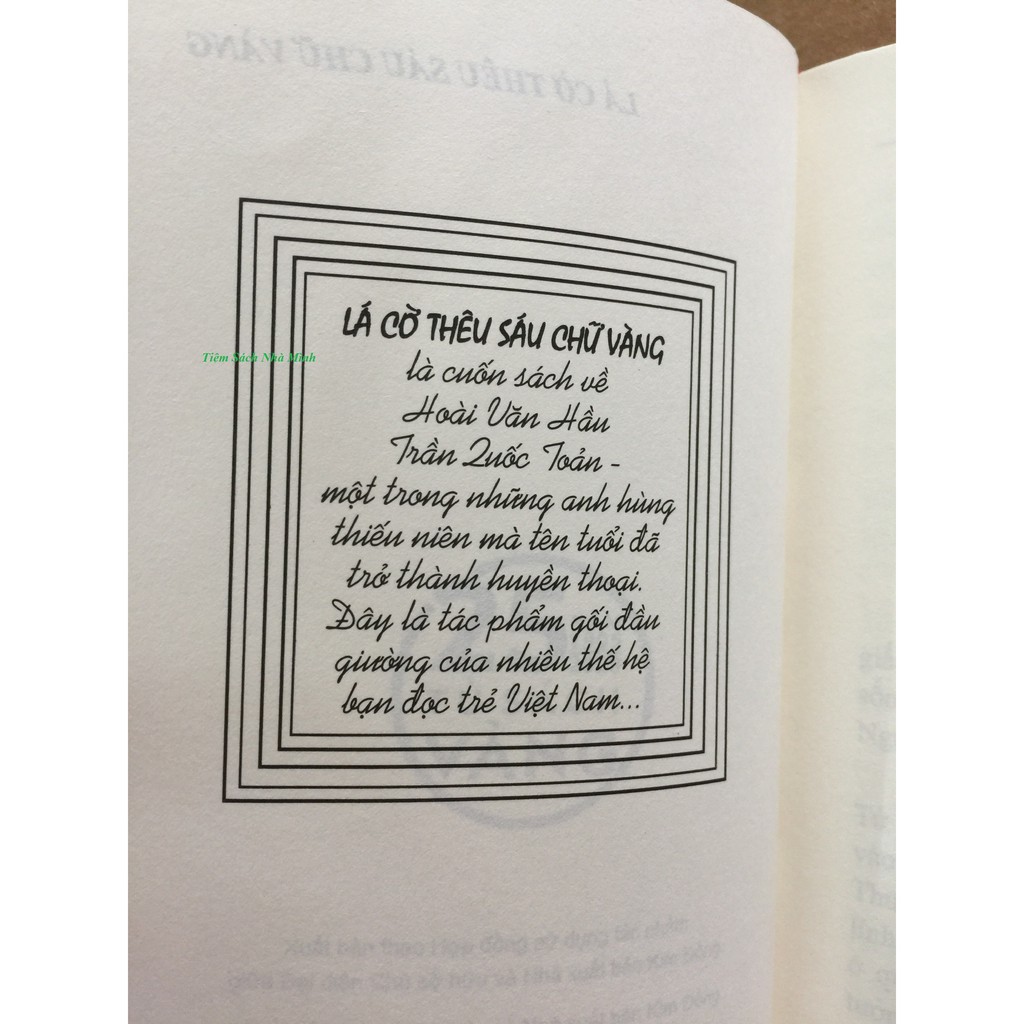 LÁ CỜ THÊU SÁU CHỮ VÀNG
LÁ CỜ THÊU SÁU CHỮ VÀNG
Tiệm Sách Nhà Mình
là cuốn sách về
Hoài Văn Hầu
Trần Quốc Toản -
một trong những anh hùng
thiếu niên mà tên tuổi đã
trở thành huyền thoại.
Đây là tác phẩm gối đầu
giường của nhiều thế hệ
bạn đọc trẻ Việt Nam...
VÀNG